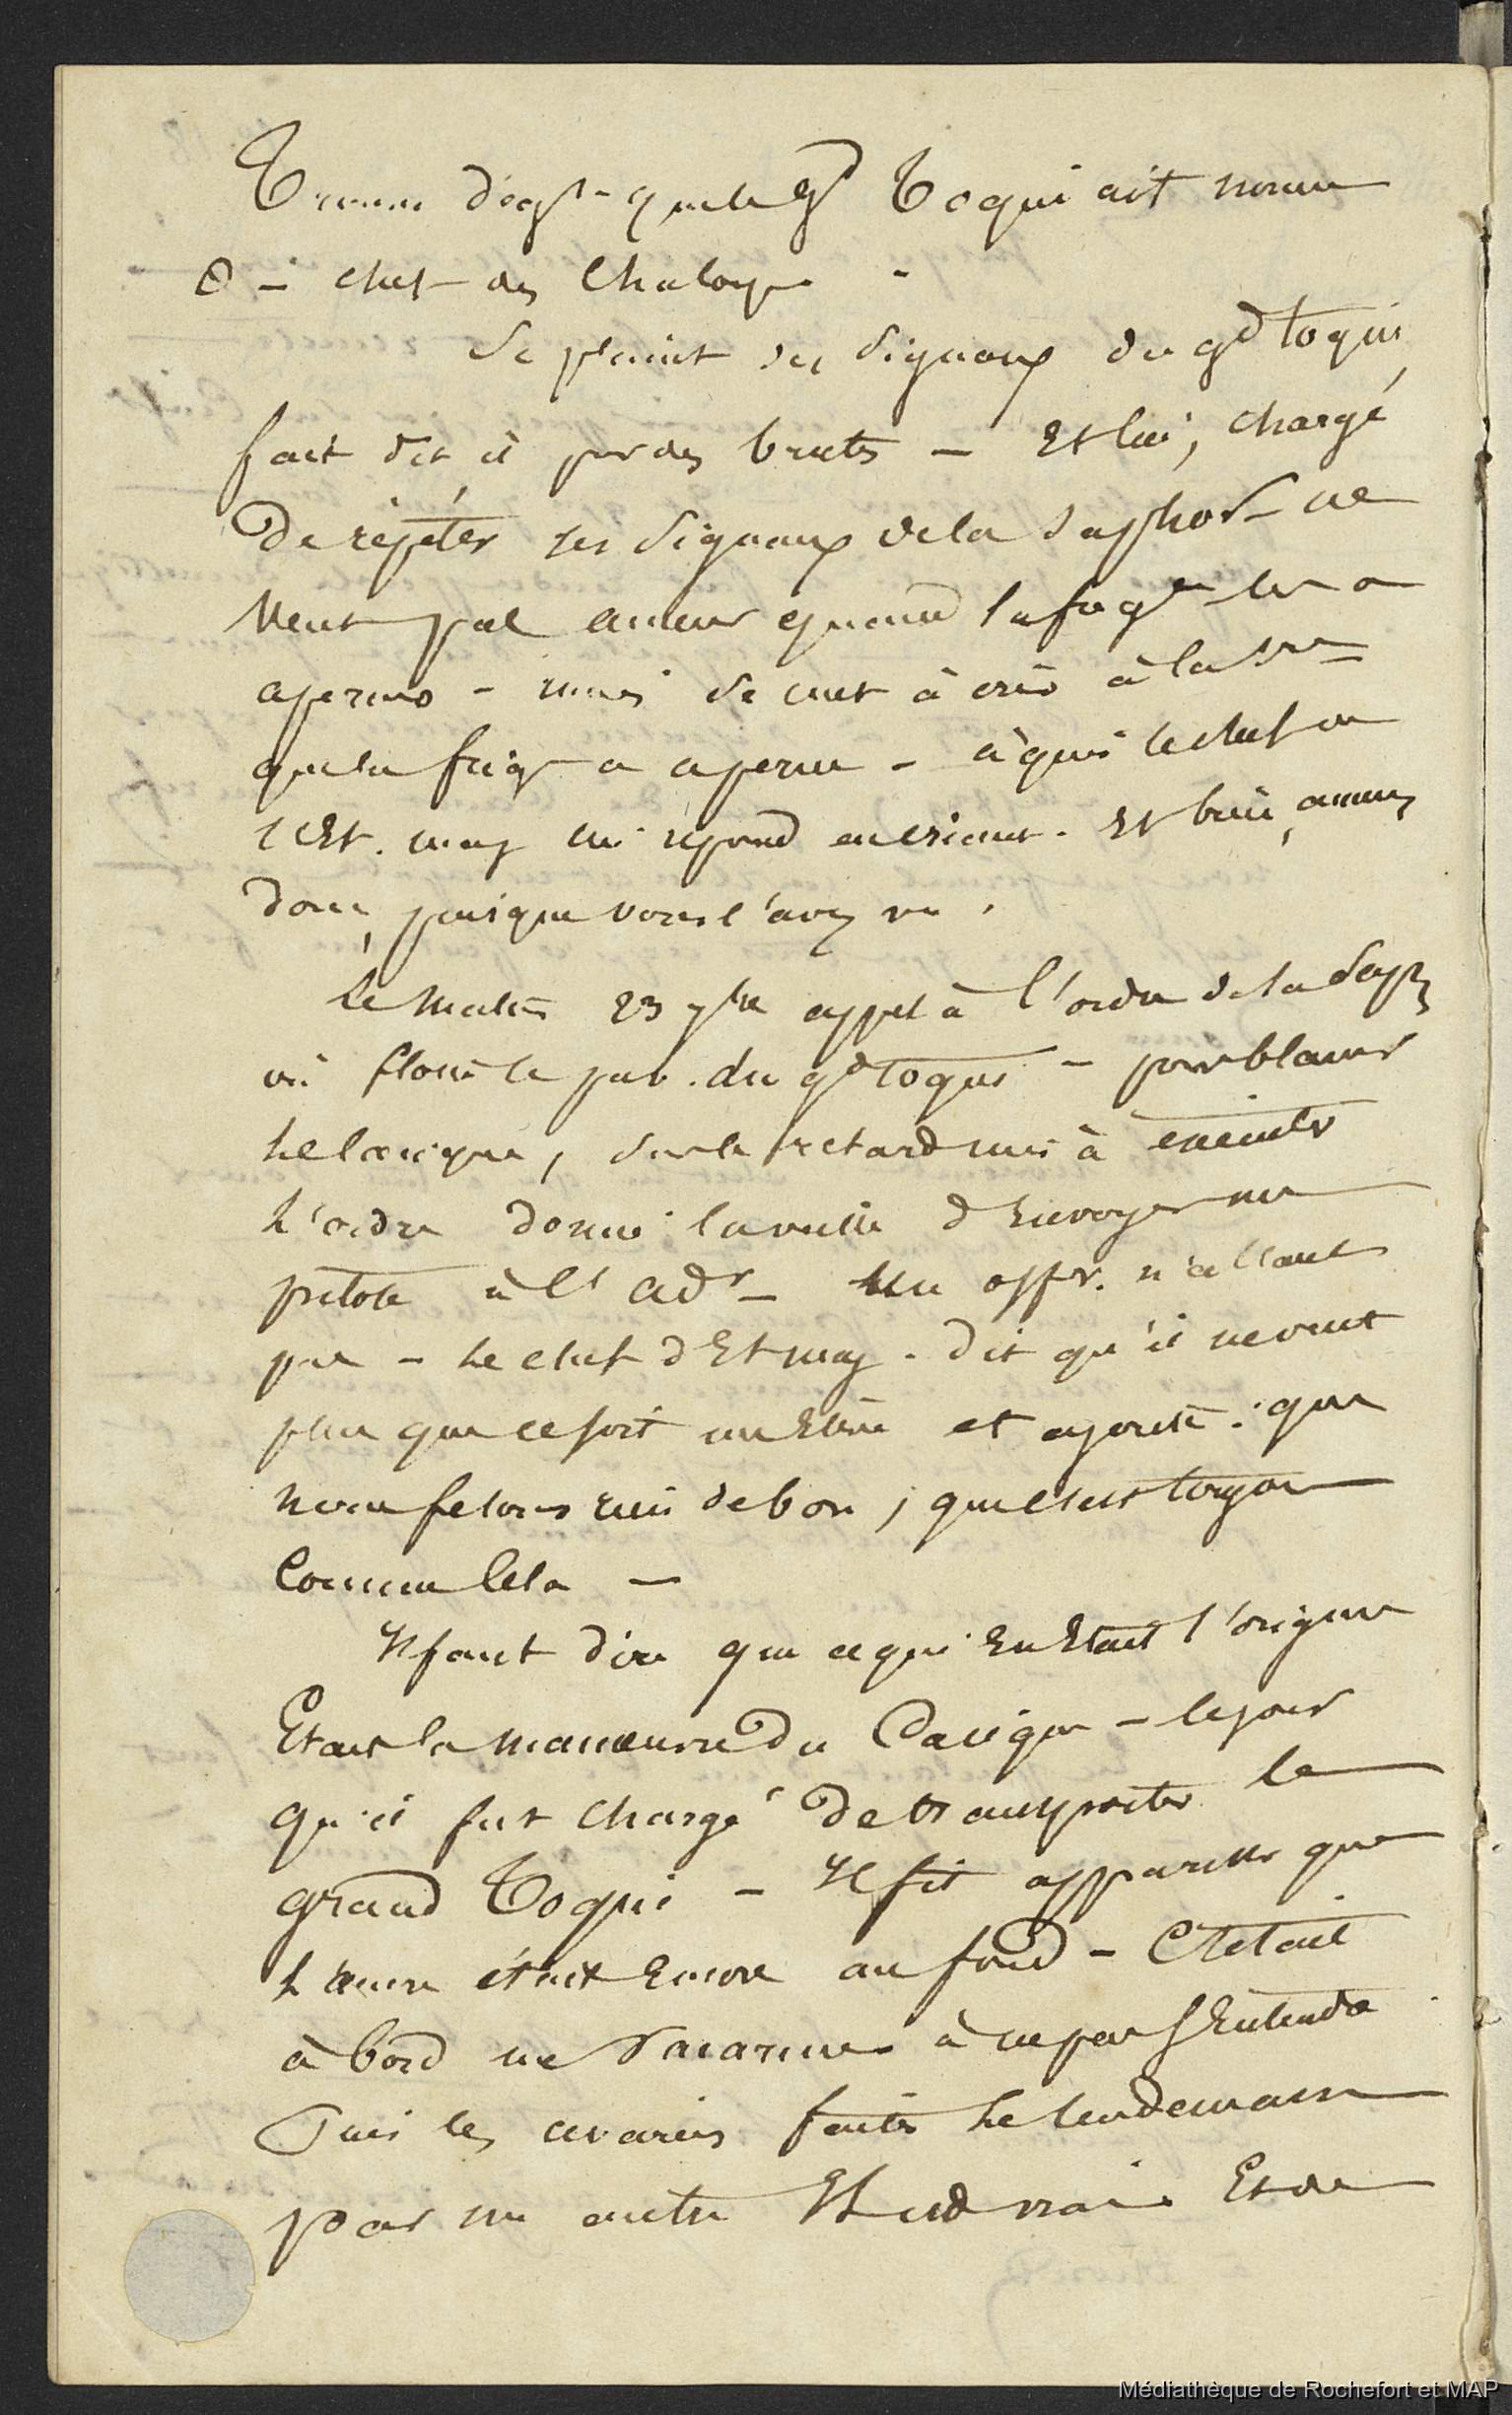 que le gd Toqui ait nommé
O - chef des Chaloupes -
Se plaint des Signaux du gd toqui,
fait dit il par des bruts - Et lui, chargé
De répéter les Signaux de la Sapho - ne
Veut pas amener quand la frégte les a
aperçus - mais se met à crier à la
que la frégte a aperçu - à quoi le chef de
l'Et. maj lui répond en criant. Et bien, amenez
donc, puisque vous l'avez vu.
Le matin 23 7bre appel à l'ordre de la
où le pav. du gd toqui - pour blamer
Le Cacique, sur le retard mis à exécuter
L'ordre donné la veille d'Envoyer un
pilote à l' - Un offr. n'allant
pas - Le chef d'Et maj. dit qu'il ne veut
plus que ce soit un Elève et ajoute: que
nous fesons rien de bon, que c'est toujours
Comme Cela -
Il faut dire que ce qui En Etait l'origine
Etait la manoeuvre Du Cacique - le jour
qu'il fut chargé De transporter le
grand Toqui - Il fit appareiller que
L'ancre était Encore au fond - C'était
à bord un Vacarme à ne pas S'Entendre
Puis les avaries faites Le lendemain
par un autre Et de
Médiathèque de Rochefort et MAP